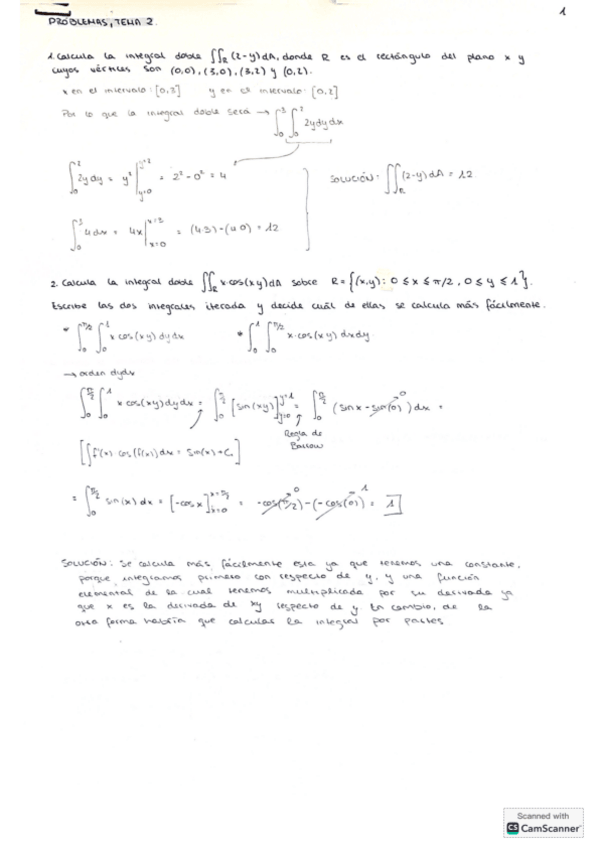 1
PROBLEMAS, TEMA 2.
1. Calcula la integral doble ∬_R (2-y)dA, donde R es el rectángulo del plano x y
cuyos vértices son (0,0), (3,0), (3,2) y (0,2).
x en el intervalo: [0,3] y en el intervalo: [0,2]
Por lo que la integral doble será → ∫_0^3 ∫_0^2 2y dy dx
∫_0^2 2y dy = y² |_{y=0}^{y=2} = 2² - 0² = 4
SOLUCIÓN: ∬_R (2-y)dA = 12
∫_0^3 4 dx = 4x |_{x=0}^{x=3} = (4·3) - (4·0) = 12
2. Calcula la integral doble ∬_R x·cos(xy)dA sobre R = {(x,y): 0 ≤ x ≤ π/2, 0 ≤ y ≤ 1}.
Escribe las dos integrales iterada y decide cuál de ellas se calcula más fácilmente.
* ∫_0^{π/2} ∫_0^1 x cos(xy) dy dx * ∫_0^1 ∫_0^{π/2} x·cos(xy) dx dy
→ orden dydx
∫_0^{π/2} ∫_0^1 x cos(xy) dy dx = ∫_0^{π/2} [sin(xy)]_{y=0}^{y=1} = ∫_0^{π/2} (sin x - sin(0)) dx =
0
Regla de
Barrow
[∫ f'(x) cos(f(x)) dx = sin(x) + C]
= ∫_0^{π/2} sin(x) dx = [-cos x]_{x=0}^{x=π/2} = -cos(π/2) - (-cos(0)) = 1
0 1
SOLUCIÓN: Se calcula más fácilmente esta ya que tenemos una constante,
porque integramos primero con respecto de y, y una función
elemental de la cual tenemos multiplicada por su derivada ya
que x es la derivada de xy respecto de y. En cambio, de la
otra forma habría que calcular la integral por partes.
Scanned with
CS CamScanner